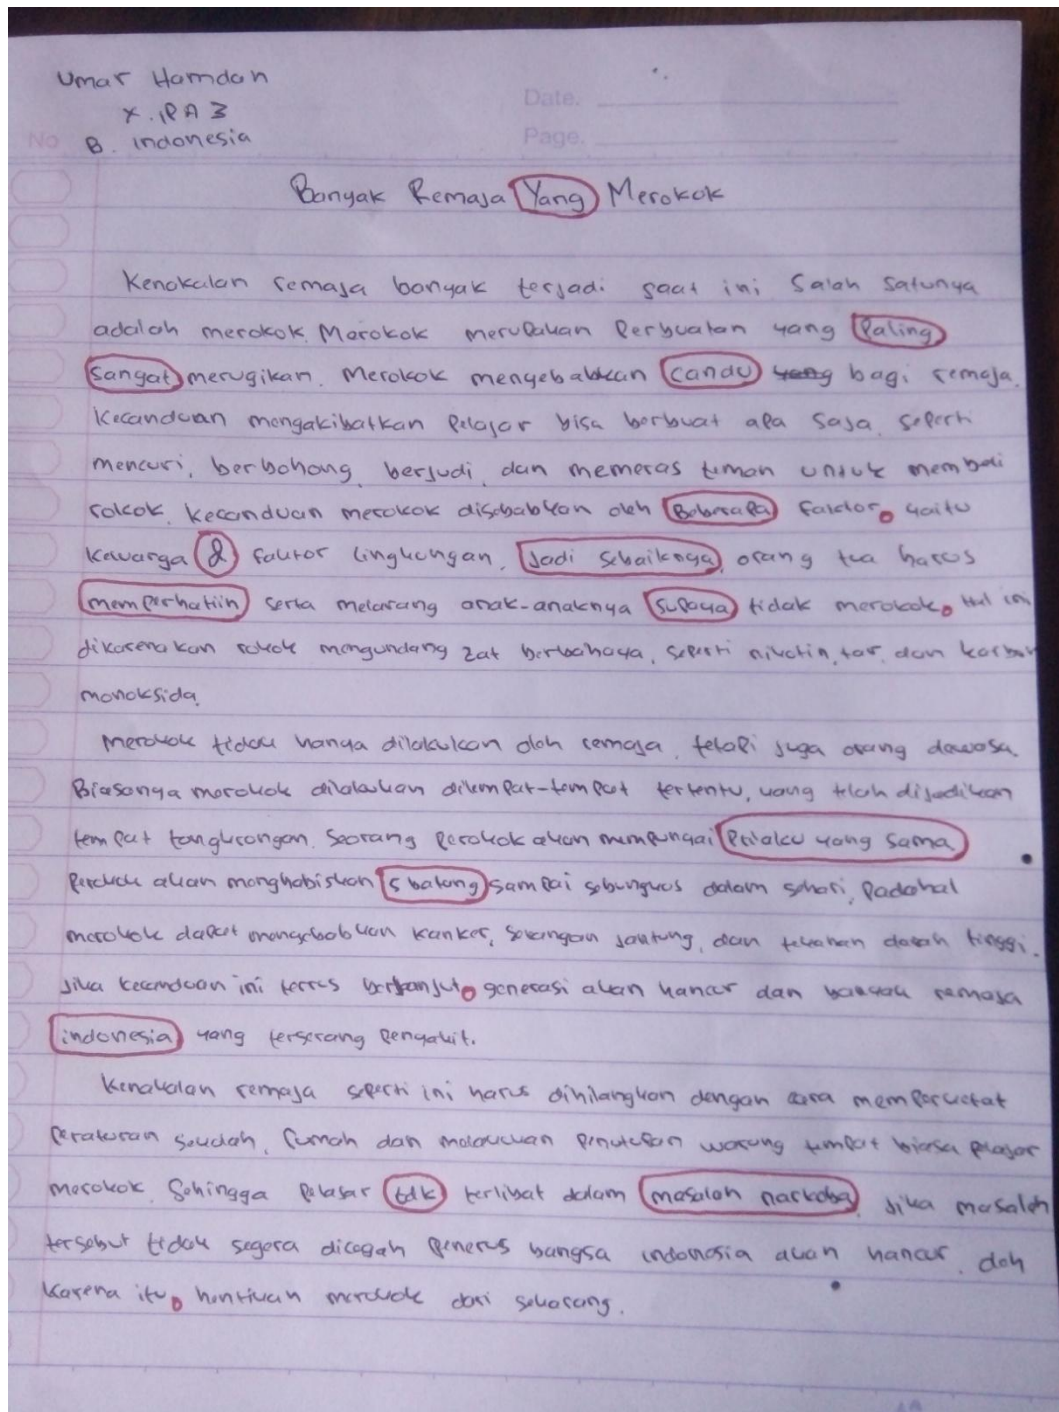 Umar Hamdan
X. IPA 3
B. Indonesia
Date.
Page.
No
Banyak Remaja Yang Merokok
Kenakalan remaja banyak terjadi saat ini Salah satunya
adalah merokok. Merokok merupakan Perbuatan yang Paling
Sangat merugikan. Merokok mengebabkan candu yang bagi remaja.
Kecanduan mengakibatkan Pelajar bisa berbuat apa saja, seperti
mencuri, berbohong, berjudi, dan memeras teman untuk membeli
rokok. Kecanduan merokok disebabkan oleh Beberapa faktor, yaitu
Kewarga & faktor lingkungan. Jadi sebaiknya, orang tua harus
memperhatiin serta melarang anak-anaknya supaya tidak merokok. Hal ini
dikarenakan rokok mengundang zat berbahaya, seperti nikotin, tar, dan karbon
monoksida.
Merokok tidak hanya dilakukan oleh remaja, tetapi juga orang dewasa.
Biasanya merokok dilakukan ditempat-tempat tertentu, yang telah dijadikan
tempat tongkrongan. Seorang Perokok akan mempunyai Prilaku yang sama.
Perokok akan menghabiskan 5 batang sampai sebungkus dalam sehari, Padahal
merokok dapat mengebabkan kanker, serangan jantung, dan tekanan darah tinggi.
Jika kecanduan ini terus berlanjut, generasi akan hancur dan banyak remaja
indonesia yang terserang Pengakit.
Kenakalan remaja seperti ini harus dihilangkan dengan cara memperketat
Peraturan seudah, rumah dan melakukan Penutupan warung tempat biasa Pelajar
merokok. Sehingga Pelajar tdk terlibat dalam masalah narkoba. Jika masalah
tersebut tidak segera dicegah Penerus bangsa indonesia akan hancur. Oleh
karena itu, hentikan merokok dari sekarang.